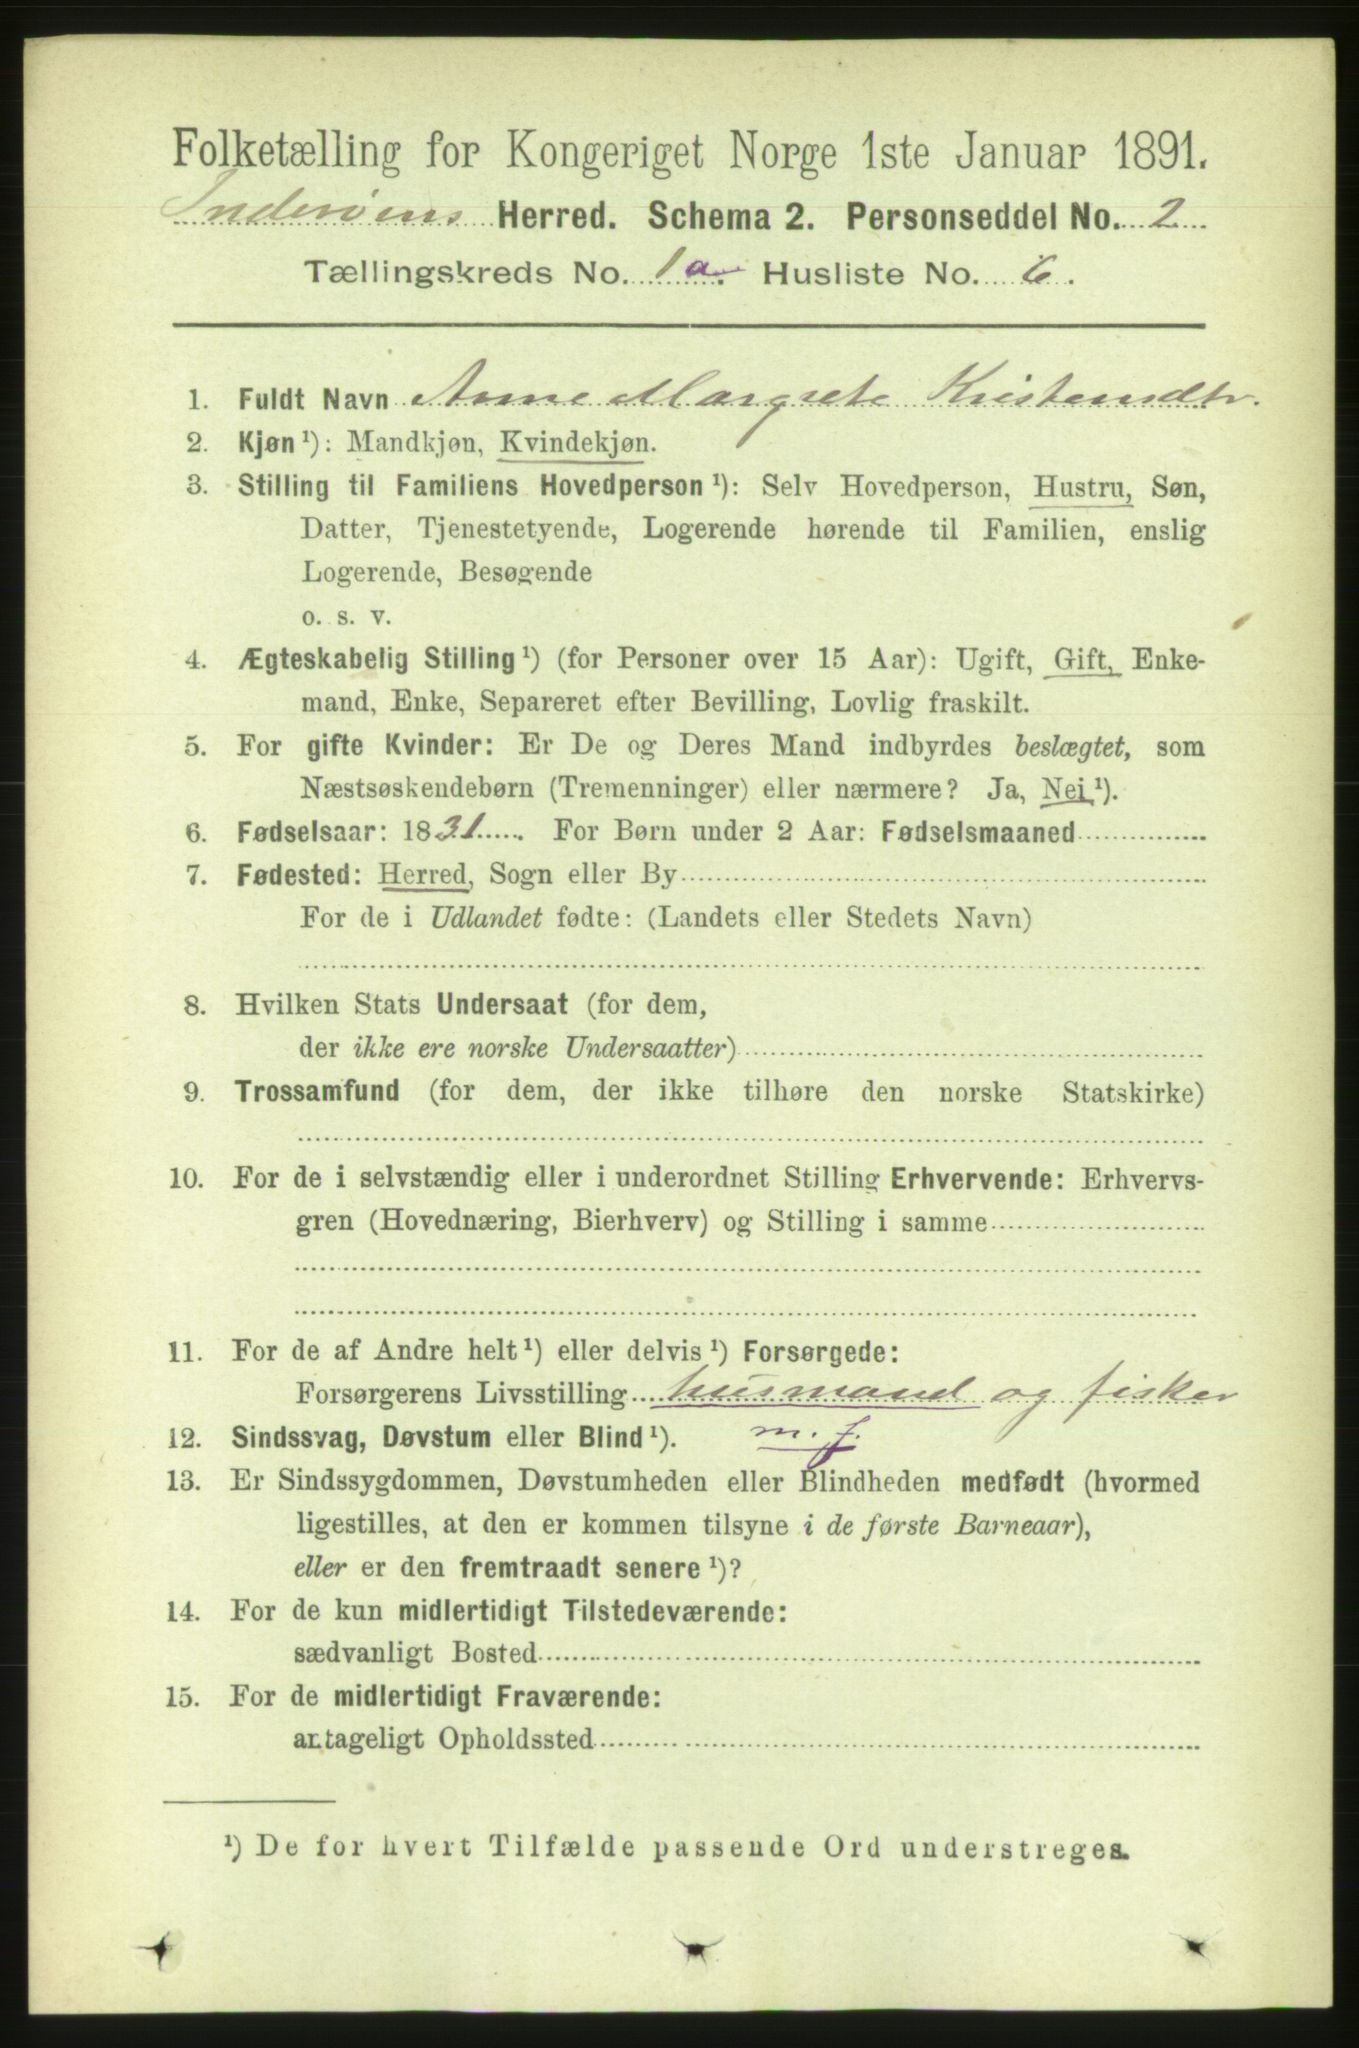 Folketælling for Kongeriget Norge 1ste Januar 1891.
Inderøens Herred. Schema 2. Personseddel No. 2
Tællingskreds No. 1 a. Husliste No. 6.
1. Fuldt Navn Anne Margrete Kristensdtr.
2. Kjøn ¹): Mandkjøn, Kvindekjøn.
3. Stilling til Familiens Hovedperson ¹): Selv Hovedperson, Hustru, Søn,
Datter, Tjenestetyende, Logerende hørende til Familien, enslig
Logerende, Besøgende
o. s. v.
4. Ægteskabelig Stilling ¹) (for Personer over 15 Aar): Ugift, Gift, Enke-
mand, Enke, Separeret efter Bevilling, Lovlig fraskilt.
5. For gifte Kvinder: Er De og Deres Mand indbyrdes beslægtet, som
Næstsøskendebørn (Tremenninger) eller nærmere? Ja, Nei ¹).
6. Fødselsaar: 1831. For Børn under 2 Aar: Fødselsmaaned
7. Fødested: Herred, Sogn eller By
For de i Udlandet fødte: (Landets eller Stedets Navn)
8. Hvilken Stats Undersaat (for dem,
der ikke ere norske Undersaatter)
9. Trossamfund (for dem, der ikke tilhøre den norske Statskirke)
10. For de i selvstændig eller i underordnet Stilling Erhvervende: Erhvervs-
gren (Hovednæring, Bierhverv) og Stilling i samme
11. For de af Andre helt ¹) eller delvis ¹) Forsørgede:
Forsørgerens Livsstilling husmand og fisker
12. Sindssvag, Døvstum eller Blind ¹). m. f.
13. Er Sindssygdommen, Døvstumheden eller Blindheden medfødt (hvormed
ligestilles, at den er kommen tilsyne i de første Barneaar),
eller er den fremtraadt senere ¹)?
14. For de kun midlertidigt Tilstedeværende:
sædvanligt Bosted
15. For de midlertidigt Fraværende:
antageligt Opholdssted
¹) De for hvert Tilfælde passende Ord understreges.